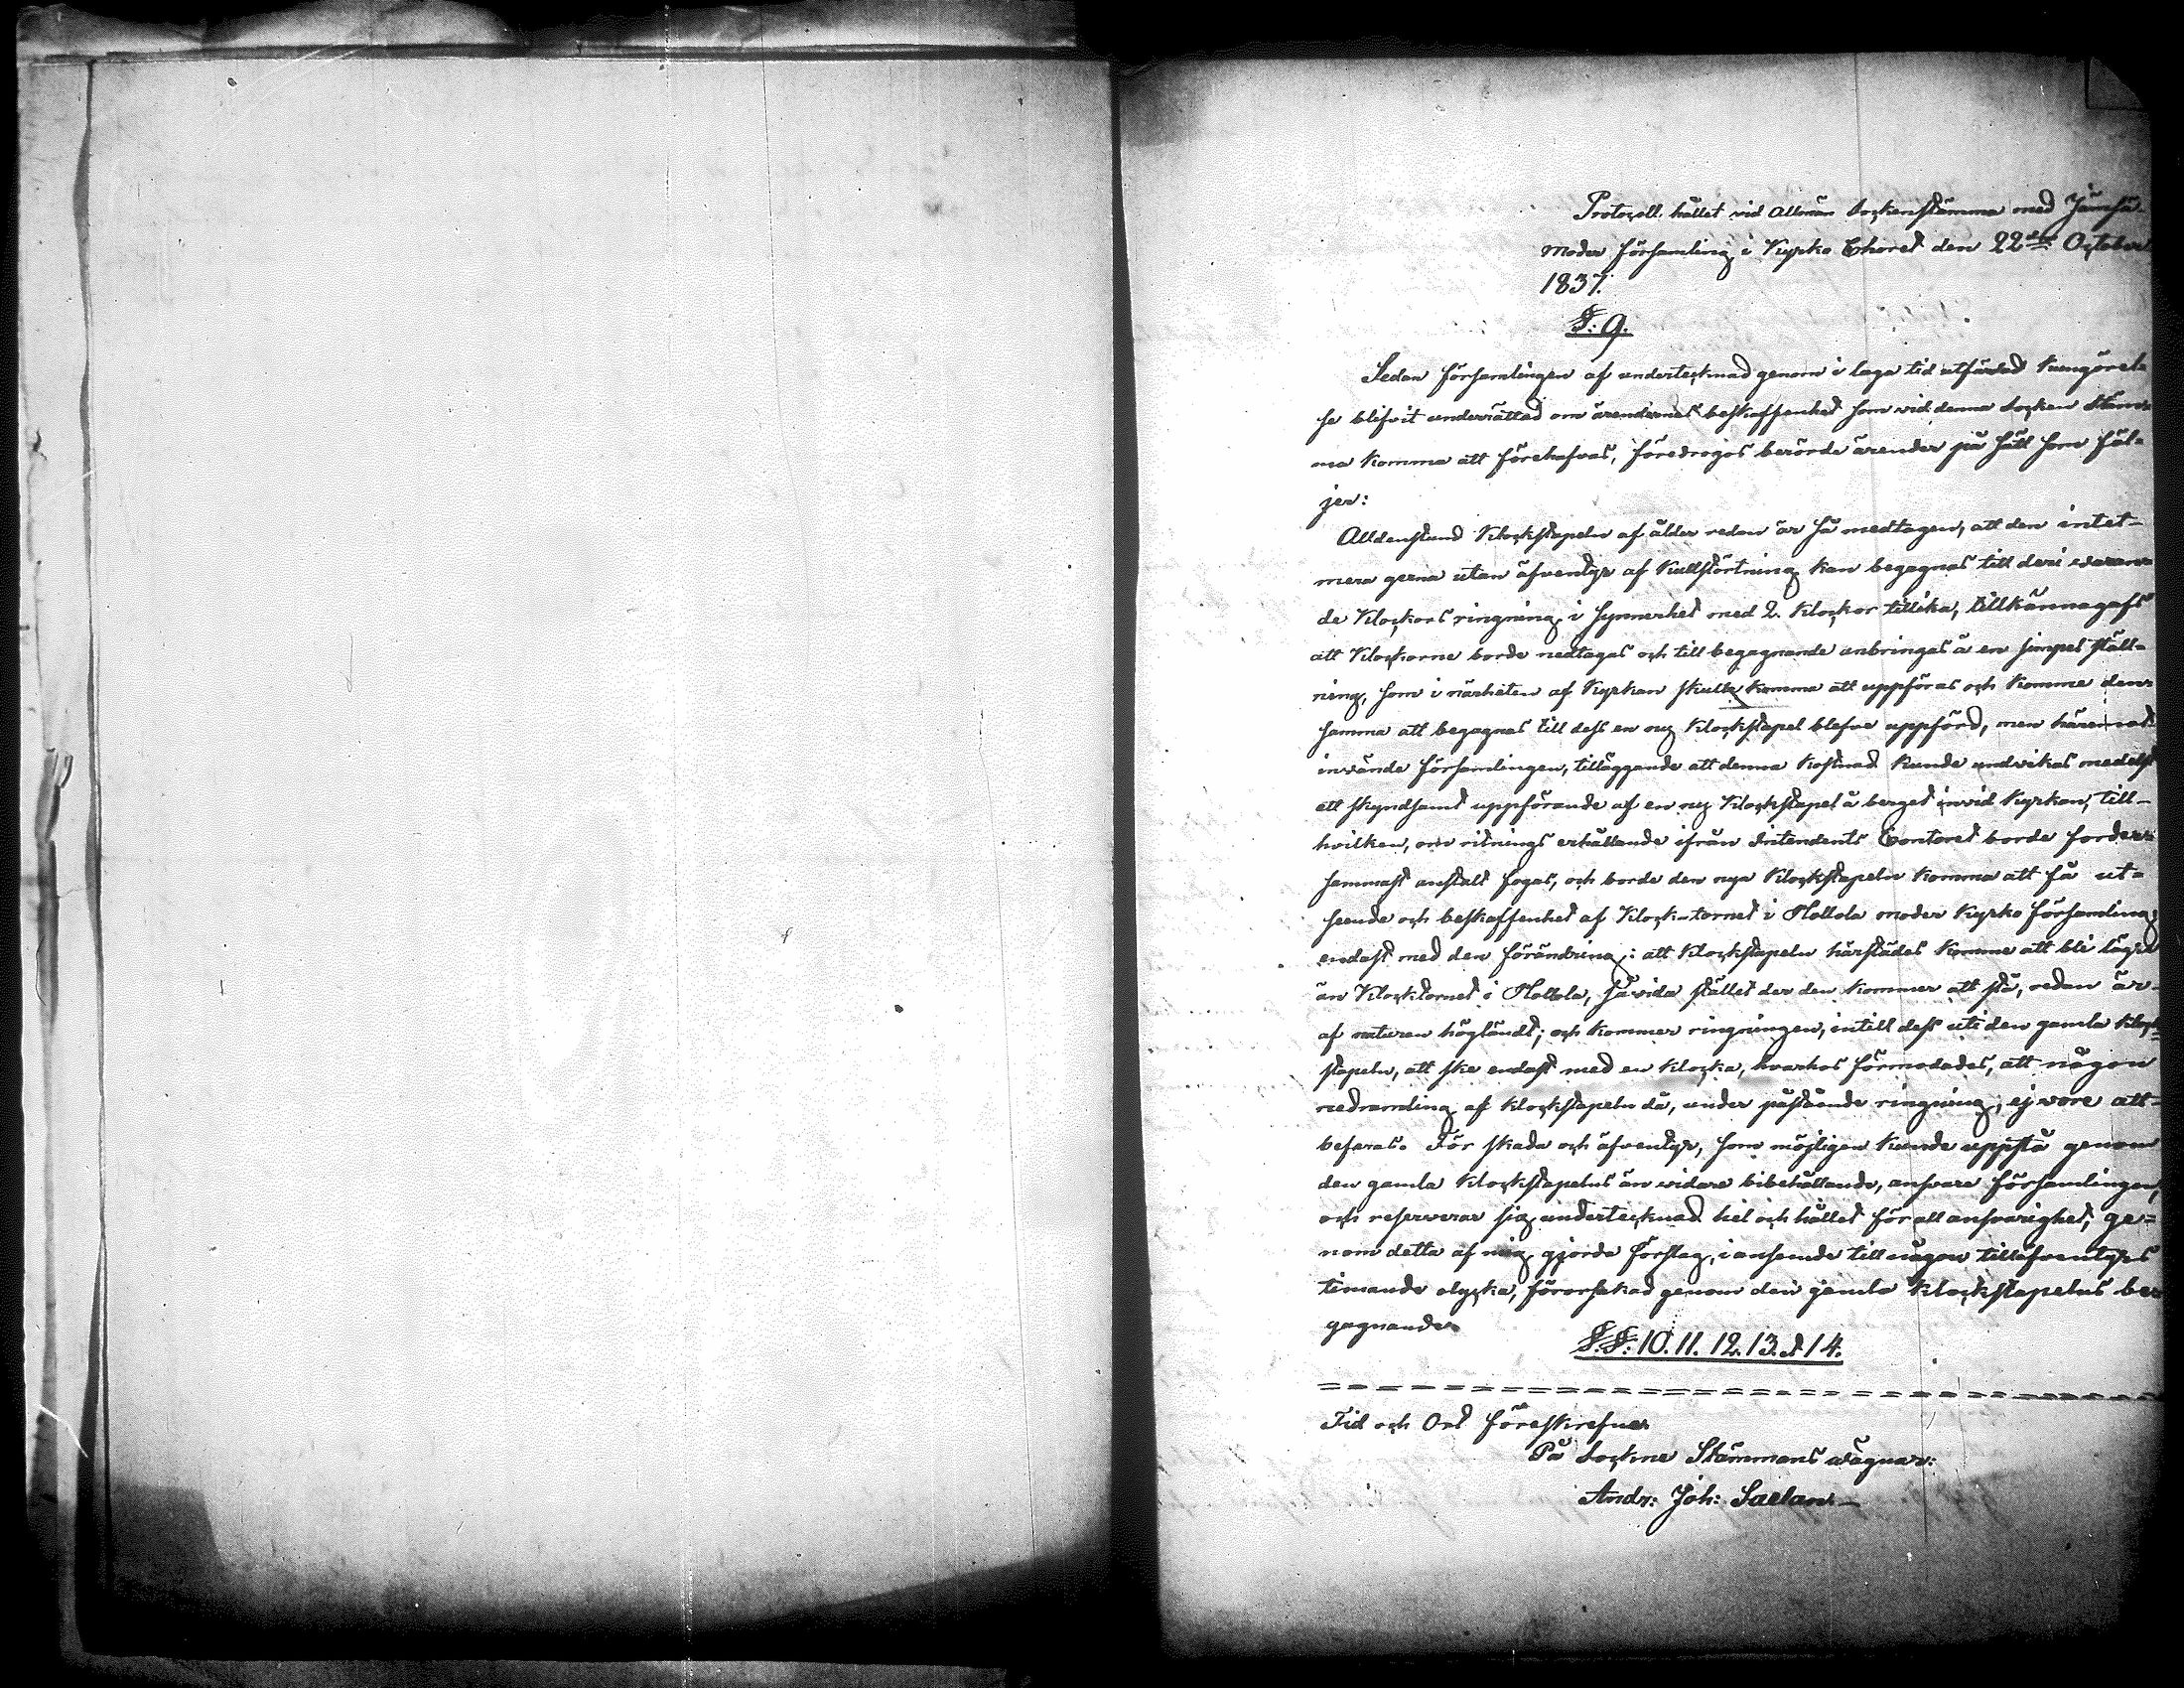 Protocoll, hållet vid allmän Sockenstämma med Jämsä
Moder församling i Kyrko Choret den 22dra October
1837.
§. 9.
Sedan församlingen af undertecknad genom i laga tid utfärdad Kungörel-
se blifvit underrättad om ärendernes beskaffenhet som vid denna Socken Stäm-
ma komma att förehafvas, föredrogos berörde ärender på sätt som föl-
jer:
Alldenstund Klockstapeln af ålder redan är så medtagen, att den intet-
mera gerna utan äfventyr af Kullstörtning kan begagnas till deri waran-
de Klockors ringning, i synnerhet med 2. Klockor tillika, tillkännagafs
att Klockorne borde nedtagas och till begagnande anbringas å en simpel ställ-
ning, som i närheten af Kyrkan skulle komma att uppföras och komme den-
samma att begagnas till dess en ny Klockstapel blefve uppförd, men häremot
invände församlingen, tilläggande att denna kostnad kunde undvikas medelst
ett skyndsamt uppförande af en ny Klockstapel å berget invid Kyrkan, till-
hvilken, om ritnings erhållande ifrån Intendents Contoret borde forder-
sammast anstalt fogas, och borde den nya Klockstapeln komma att få ut-
seende och beskaffenhet af Klock-tornet i Hollola moder Kyrko församling,
endast med den förändring: att Klockstapeln härstädes komme att bli lägre
än Klocktornet i Hollola, såvida stället der den kommer att stå, redan är
af naturen högländt; och kommer ringningen, intill dess uti den gamla Klock-
stapeln, att ske endast med en klocka, hvarhos förmodades, att någon
nedramling af klockstapeln då, under påstående ringning, ej vore att-
befaras. För skada och äfventyr, som möjligen kunde uppstå genom
den gamla Klockstapelns än widare bibehållande, ansvare församlingen,
och reserverar sig undertecknad hel och hållet för all ansvarighet, ge-
nom detta af mig gjorda förslag, i anseende till någon tilläfventyrs
timande olycka, förorsakad genom den gamla Klockstapelns be-
gagnande.
§.§. 10. 11. 12. 13. & 14.
Tid och Ort föreskrefne.
På Sockne Stämmans wägnar:
Andr: Joh: Saelan.